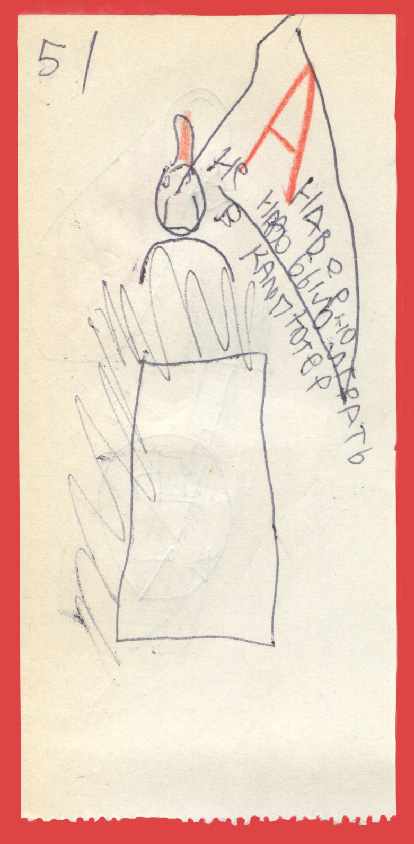 5/
А
НАВЕРНО
НЕ НАДО БЫЛО ИГРАТЬ
В КАМПЮТЕР